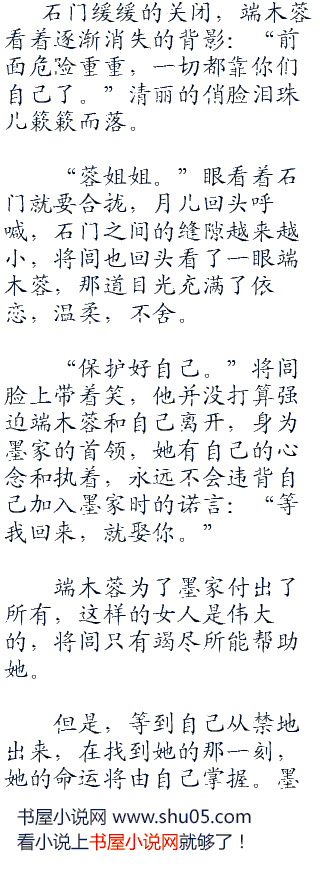 石门缓缓的关闭，端木蓉
看着逐渐消失的背影：“前
面危险重重，一切都靠你们
自己了。”清丽的俏脸泪珠
儿簌簌而落。
“蓉姐姐。”眼看着石
门就要合拢，月儿回头呼
喊，石门之间的缝隙越来越
小，将闾也回头看了一眼端
木蓉，那道目光充满了依
恋，温柔，不舍。
“保护好自己。”将闾
脸上带着笑，他并没打算强
迫端木蓉和自己离开，身为
墨家的首领，她有自己的心
念和执着，永远不会违背自
己加入墨家时的诺言：“等
我回来，就娶你。”
端木蓉为了墨家付出了
所有，这样的女人是伟大
的，将闾只有竭尽所能帮助
她。
但是，等到自己从禁地
出来，在找到她的那一刻，
她的命运将由自己掌握。墨
书屋小说网 www.shu05.com
看小说上书屋小说网就够了！